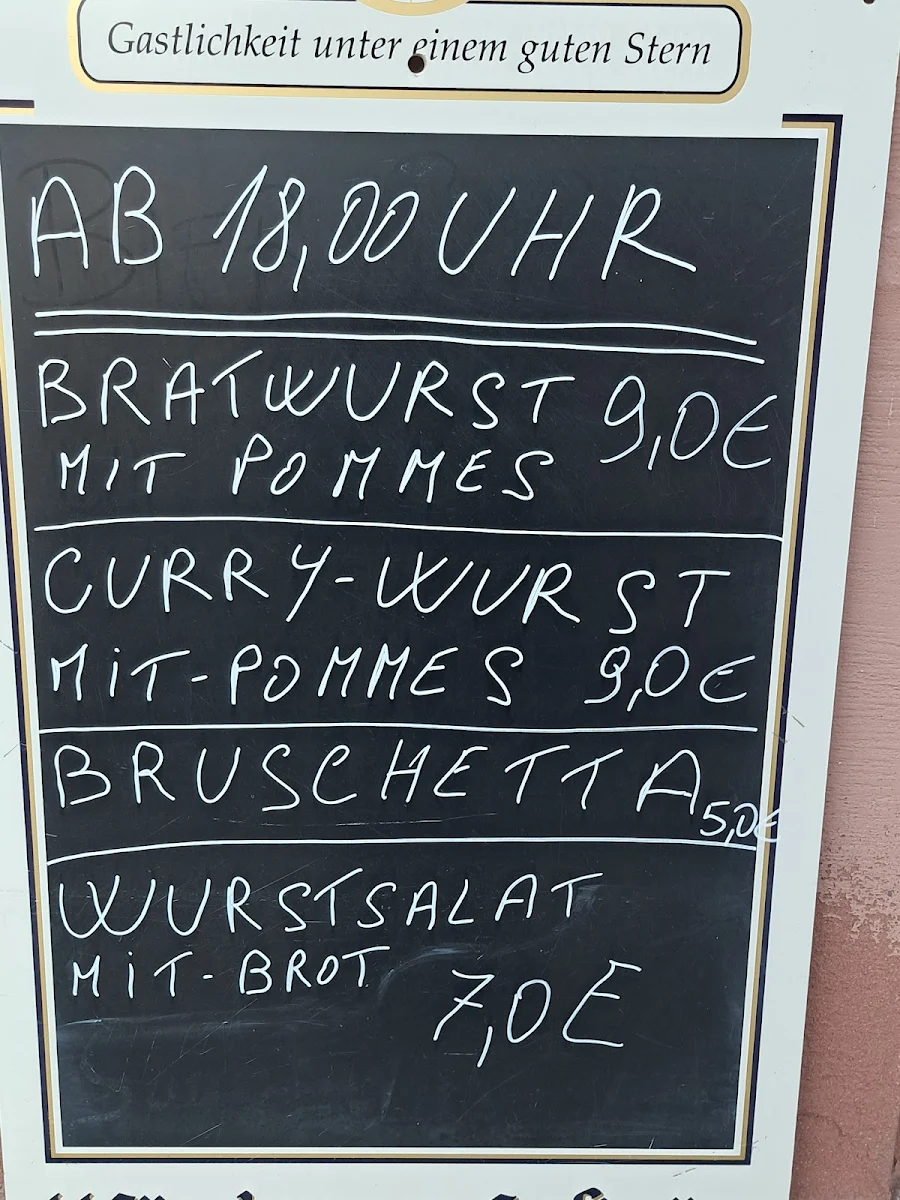 Gastlichkeit unter einem guten Stern
AB 18,00 UHR
BRATWURST 9,0€
MIT POMMES
CURRY-WURST
MiT-POMMES 9,0€
BRUSCHETTA 5,0€
WURSTSALAT
MiT-BROT 7,0E